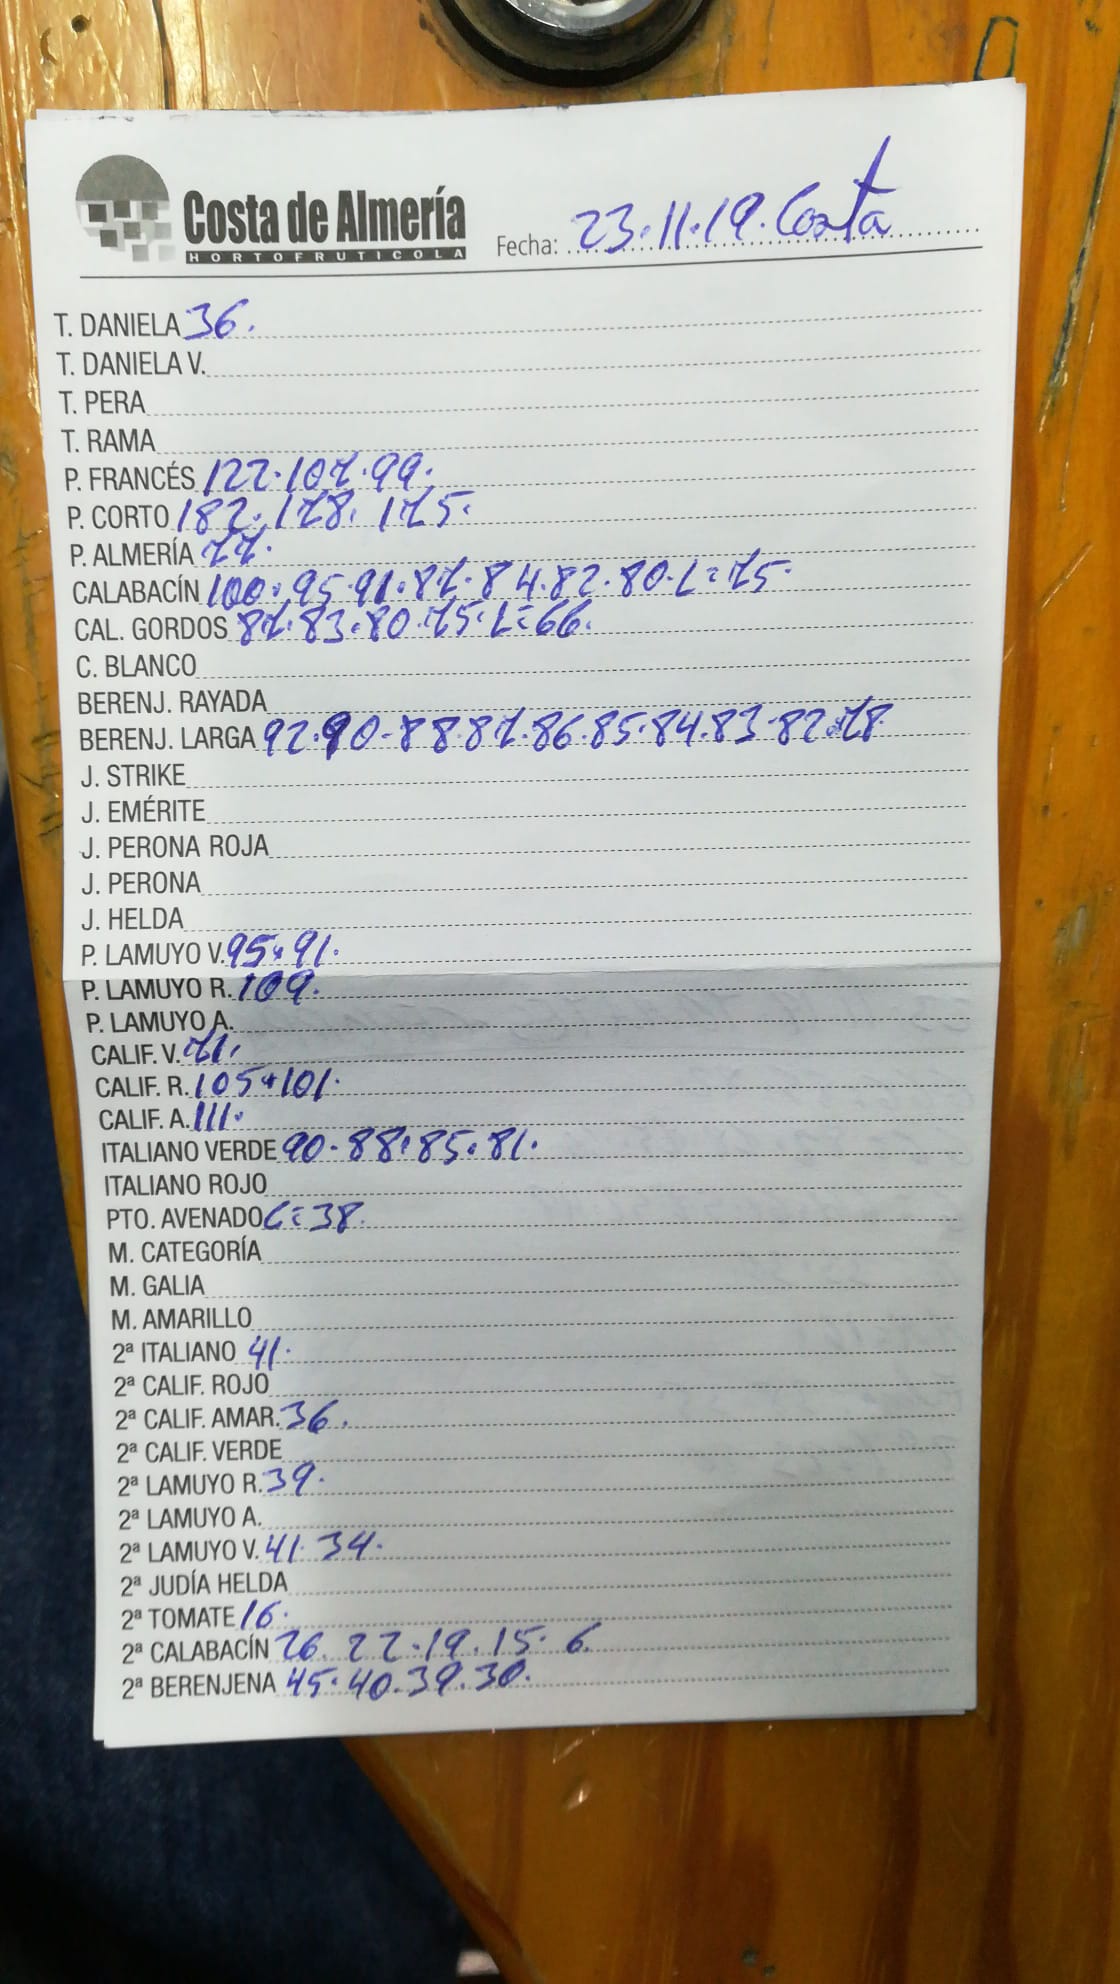 Costa de Almería
HORTOFRUTICOLA
Fecha: 23.11.19. Costa
T. DANIELA 36.
T. DANIELA V.
T. PERA
T. RAMA
P. FRANCÉS 122.107.99.
P. CORTO 182.178.175.
P. ALMERÍA 77.
CALABACÍN 100.95.91.87.84.82.80.L=75.
CAL. GORDOS 87.83.80.75.L=66.
C. BLANCO
BERENJ. RAYADA
BERENJ. LARGA 92.90.88.87.86.85.84.83.82.78
J. STRIKE
J. EMÉRITE
J. PERONA ROJA
J. PERONA
J. HELDA
P. LAMUYO V. 95.91.
P. LAMUYO R. 109.
P. LAMUYO A.
CALIF. V. 71.
CALIF. R. 105.101.
CALIF. A. 111.
ITALIANO VERDE 90.88.85.81.
ITALIANO ROJO
PTO. AVENADO L=38.
M. CATEGORÍA
M. GALIA
M. AMARILLO
2ª ITALIANO 41.
2ª CALIF. ROJO
2ª CALIF. AMAR. 36.
2ª CALIF. VERDE
2ª LAMUYO R. 39.
2ª LAMUYO A.
2ª LAMUYO V. 41.34.
2ª JUDÍA HELDA
2ª TOMATE 16.
2ª CALABACÍN 26.22.19.15.6.
2ª BERENJENA 45.40.39.30.